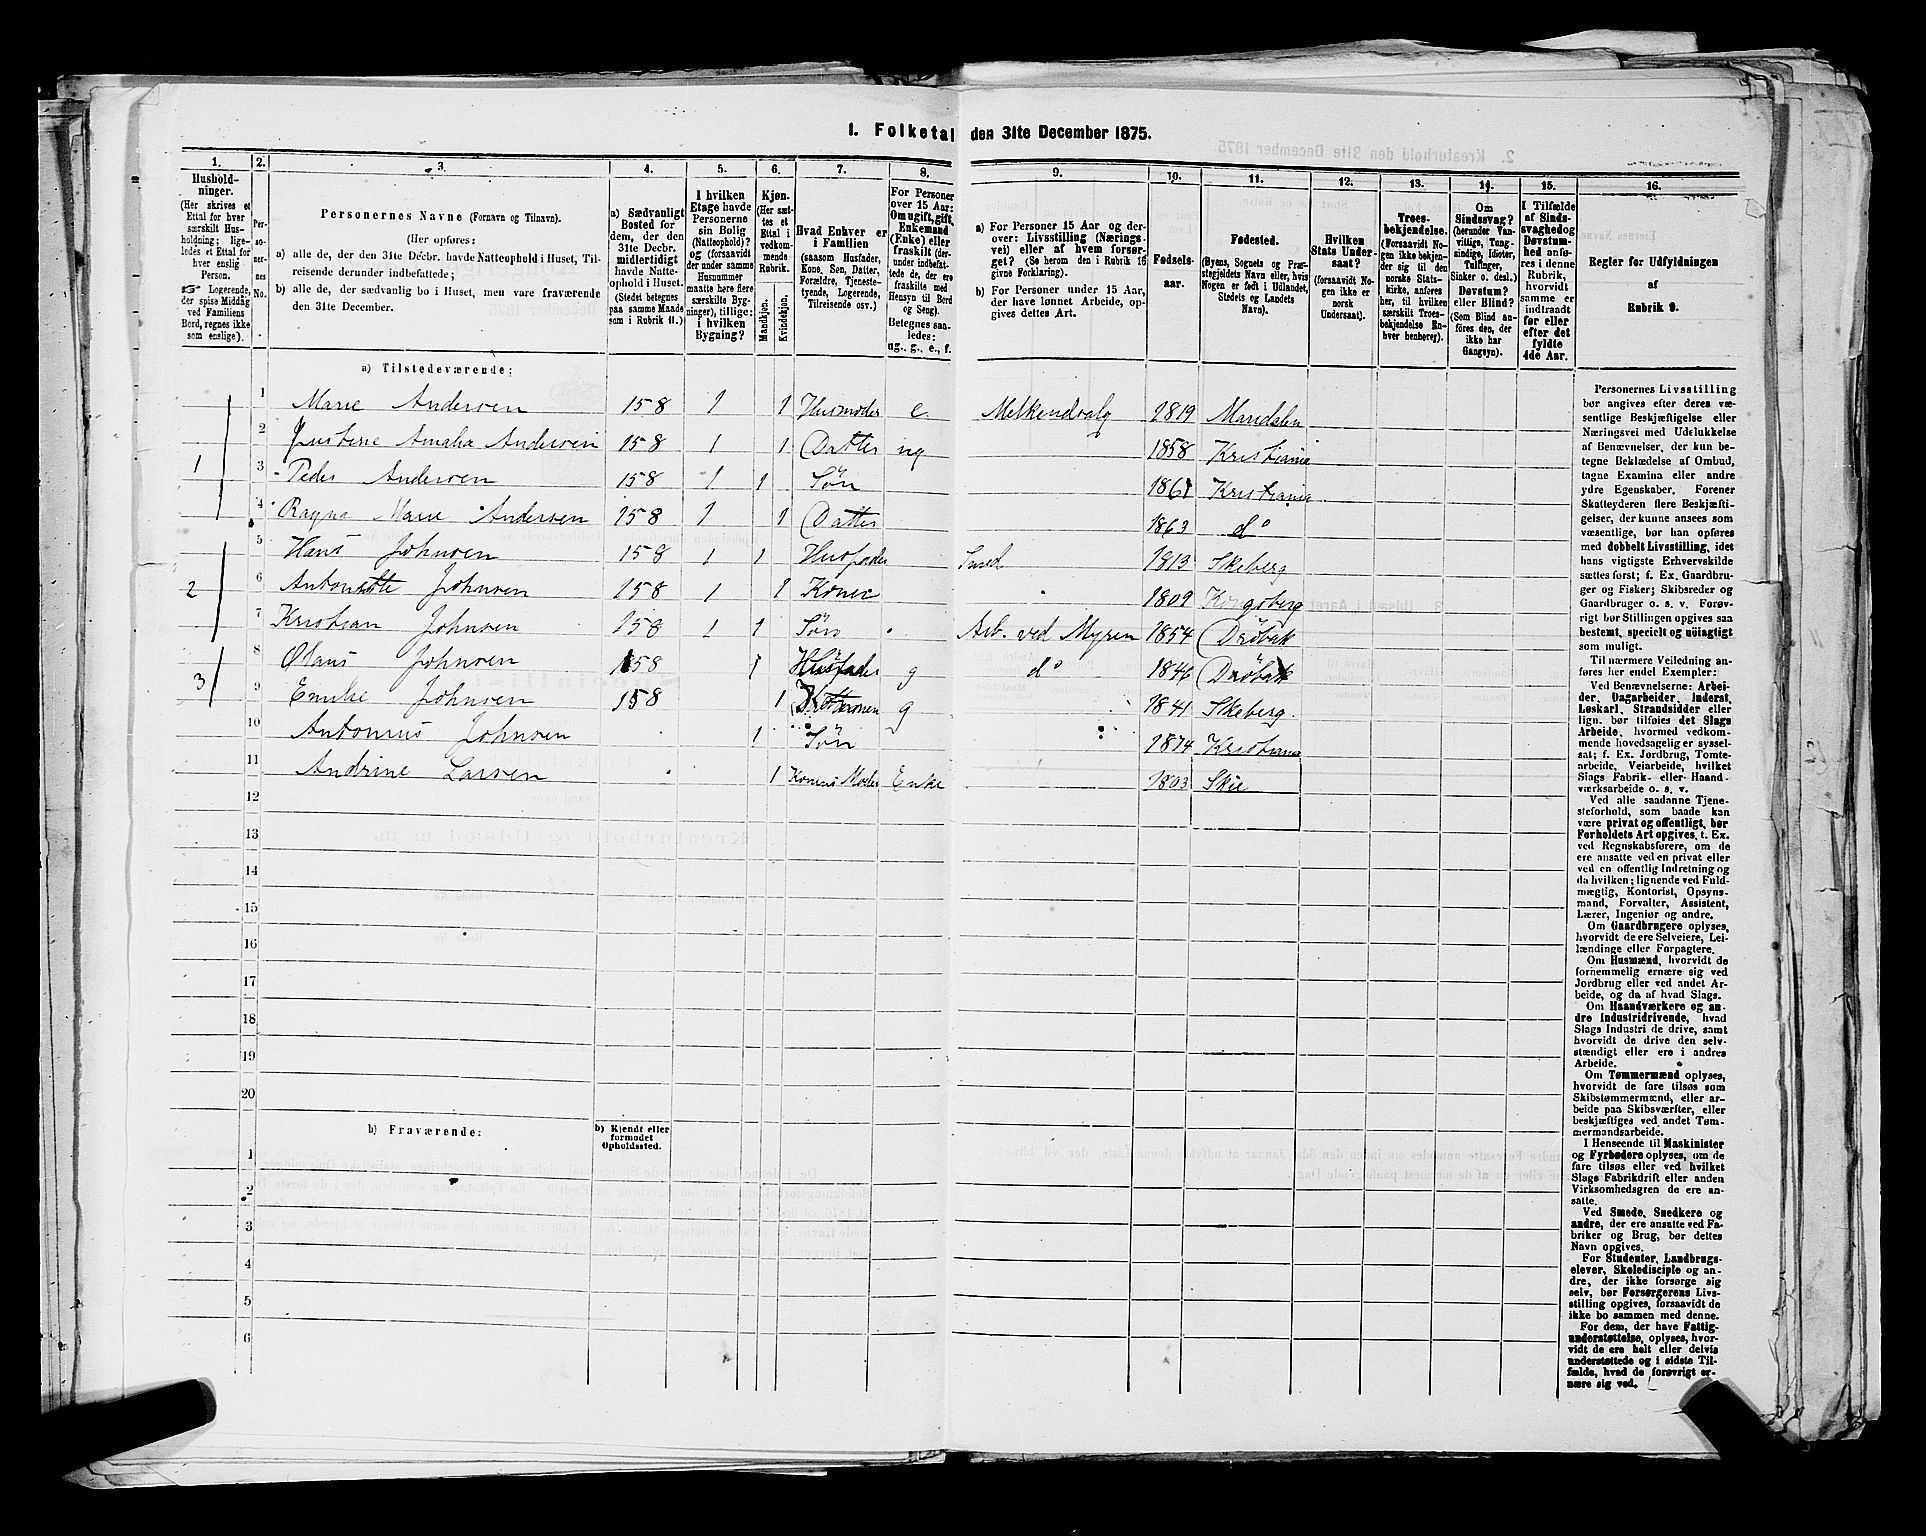 1. Folketal den 31te December 1875.
1. 2. 3. 4. 5. 6. 7. 8. 9. 10. 11. 12. 13. 14. 15. 16.
Husholdninger.
(Her skrives et
Ettal for hver
særskilt Husholdning;
ligeledes et Ettal for
hver enslig
Person.
☞ Logerende,
der spise Middag
ved Familiens
Bord, regnes ikke
som enslige).
Personernes No.
Personernes Navne (Fornavn og Tilnavn).
(Her opføres:
a) alle de, der den 31te Decbr. havde Natteophold i Huset, Tilreisende derunder indbefattede;
b) alle de, der sædvanlig bo i Huset, men vare fraværende
den 31te December.
a) Sædvanligt
Bosted for
dem, der den
31te Decbr.
midlertidigt
havde Natteophold i Huset.
(Stedet betegnes
paa samme Maade
som i Rubrik 11.)
I hvilken
Etage havde
Personerne
sin Bolig
(Natteophold)?
og (forsaavidt
der under samme
Husnummer
maatte høre flere
særskilte Bygninger), tillige:
i hvilken
Bygning?
Kjøn.
(Her sættes et
Ettal i
vedkommende
Rubrik.
Mandkjøn.
Kvindekjøn.
Hvad Enhver er
i Familien
(saasom Husfader,
Kone, Søn, Datter,
Forældre, Tjenestetyende, Logerende,
Tilreisende osv.)
For Personer
over 15 Aar:
Om ugift, gift,
Enkemand
(Enke) eller
fraskilt (derunder indbefattede de, der ere
fraskilte med
Hensyn til Bord
og Seng).
Betegnes saaledes:
ug., g., e., f.
a) For Personer 15 Aar og derover: Livsstilling (Næringsvei) eller af hvem forsørget? (Se herom den i Rubrik 16
givne Forklaring).
b) For Personer under 15 Aar,
der have lønnet Arbeide, opgives dettes Art.
Fødselsaar.
Fødested.
(Byens, Sognets og Præstegjeldets Navn eller, hvis
Nogen er født i Udlandet,
Stedets og Landets
Navn).
Hvilken
Stats Undersaat?
(forsaavidt Nogen ikke er
norsk
Undersaat).
Troesbekjendelse.
(Forsaavidt Nogen ikke bekjender sig til den
norske Statskirke, anføres
her, til hvilken
særskilt Troesbekjendelse Enhver benhører).
Om
Sindssvag?
(herunder Vanvittige, Tungsindige, Idioter,
Tullinger,
Sinker o. desl.)
Døvstum?
eller Blind?
(Som Blind anføres den, der
ikke har
Gangsyn).
I Tilfælde
af Sindssvaghed og
Døvstumhed anføres i denne
Rubrik,
hvorvidt
samme er
indtraadt
før eller
efter det
fyldte
4de Aar.
Regler for Udfyldningen
af
Rubrik 9.
a) Tilstedeværende:
1 Marie Andersen 158 1 1 Husmoder e. Melkeudsalg 1819 Maridalen
2 Justine Amalia Andersen 158 1 1 Datter ug 1858 Kristiania
1 3 Peder Andersen 158 1 1 Søn 1861 Kristiania
4 Ragna Marie Andersen 158 1 1 Datter 1863 do
5 Hans Johnsen 158 1 1 Husfader Smed 1813 Skeberg
2 6 Antonette Johnsen 158 1 1 Kone 1809 Kongsberg
7 Kristian Johnsen 158 1 1 Søn Arb. ved Myren 1854 Drøbak
8 Olaus Johnsen 158 1 Husfader g do 1846 Drøbak
3 9 Emilie Johnsen 158 1 Konen g 1841 Skeberg.
10 Antonius Johnsen 1 Søn 1874 Kristiania
11 Andrine Larsen 1 Konens Moder Enke 1803 Skie
12
13
14
15
16
17
18
19
20
b) Fraværende:
b) Kjendt eller
formodet
Opholdssted.
1
2
3
4
5
6
Personernes Livsstilling
bør angives efter deres væsentlige Beskjæftigelse eller
Næringsvei med Udelukkelse
af Benævnelser, der kun betegne Beklædelse af Ombud,
tagne Examina eller andre
ydre Egenskaber. Forener
Skatteyderen flere Beskjæftigelser, der kunne ansees som
væsentlige, bør han opføres
med dobbelt Livsstilling, idet
hans vigtigste Erhvervskilde
sættes først; f. Ex. Gaardbruger og Fisker; Skibsreder og
Gaardbruger o. s. v. Forøvrigt bør Stillingen opgives saa
bestemt, specielt og nøiagtigt
som muligt.
Til nærmere Veiledning anføres her endel Exempler:
Ved Benævnelserne: Arbeider, Dagarbeider, Inderst,
Løskarl, Strandsidder eller
lign. bør tilføies det Slags
Arbeide, hvormed vedkommende hovedsagelig er sysselsat; f. Ex. Jordbrug, Tomtearbeide, Veiarbeide, hvilket
Slags Fabrik- eller Haandværksarbeide o. s. v.
Ved alle saadanne Tjenesteforhold, som baade kan
være privat og offentligt, bør
Forholdets Art opgives, t. Ex.
ved Regnskabsførere, om de
ere ansatte ved en privat eller
ved en offentlig Indretning og
da hvilken; lignende ved Fuldmægtig, Kontorist, Opsynsmand, Forvalter, Assistent,
Lærer, Ingeniør og andre.
Om Gaardbrugere oplyses,
hvorvidt de ere Selveiere, Leilændinge eller Forpagtere.
Om Husmænd, hvorvidt de
fornemmelig ernære sig ved
Jordbrug eller ved andet Arbeide, og da af hvad Slags.
Om Haandværkere og andre Industridrivende, hvad
Slags Industri de drive, samt
hvorvidt de drive den selvstændigt eller ere i andres
Arbeide.
Om Tømmermænd oplyses,
hvorvidt de fare tilsøs som
Skibstømmermænd, eller arbeide paa Skibsværfter, eller
beskjæftiges ved andet Tømmermandsarbeide.
I Henseende til Maskinister
og Fyrbødere oplyses, om de
fare tilsøs eller ved hvilket
Slags Fabrikdrift eller anden
Virksomhedsgren de ere ansatte.
Ved Smede, Snedkere og
andre, der ere ansatte ved Fabriker og Brug, bør dettes
Navn opgives.
For Studenter, Landbrugselever, Skoledisciple og andre, der ikke forsørge sig
selv, bør Forsørgerens Livsstilling opgives, forsaavidt de
ikke bo sammen med denne.
For dem, der have Fattigunderstøttelse, oplyses, hvorvidt de ere helt eller delvis
understøttede og i sidste Tilfælde, hvad de forøvrigt ernære sig ved.